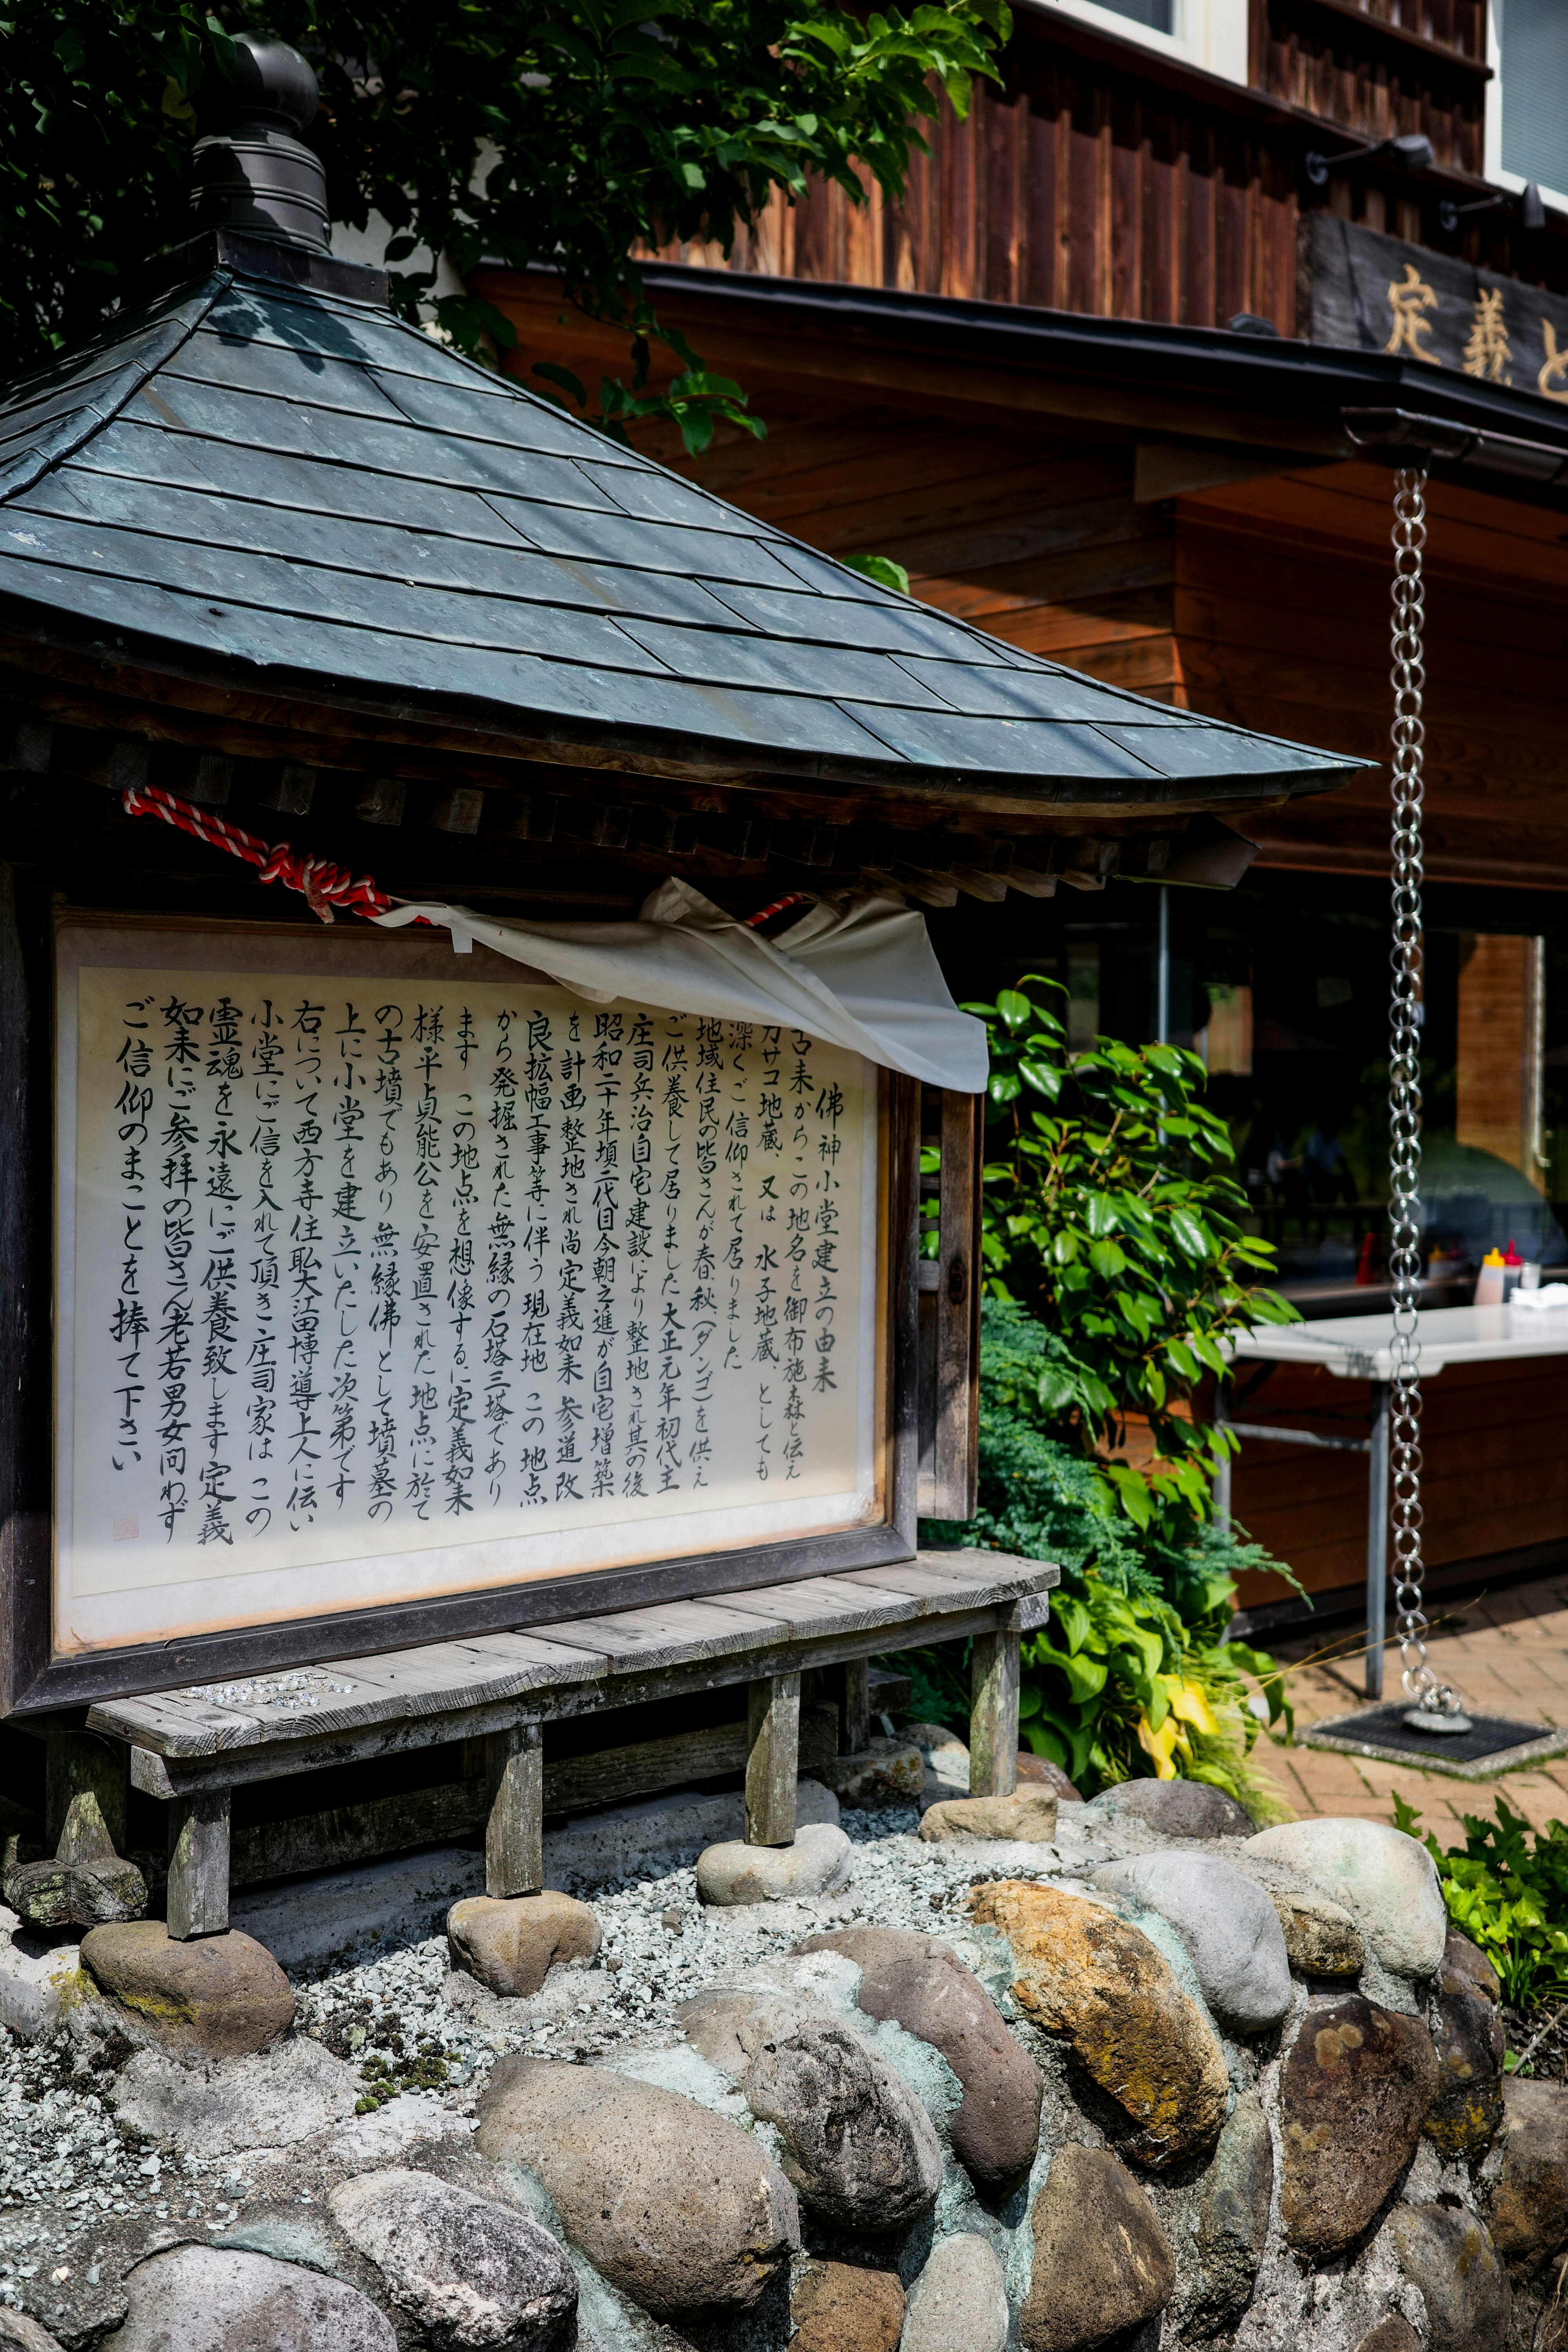 佛神小堂建立の由来
古来からこの地名を御布施森と伝え
カサコ地蔵、又は 水子地蔵、としても
深くご信仰されて居りました
地域住民の皆さんが春、秋、(ダンゴ)を供え
ご供養して居りました大正元年初代主
庄司兵治自宅建設により整地され其の後
昭和二十年頃二代目今朝之進が自宅増築
を計画整地され尚定義如来 参道改
良拡幅工事等に伴う現在地 この地点
から発掘された無縁の石塔三塔であり
ます この地点を想像するに定義如来
様平貞能公を安置された地点に於て
の古墳でもあり 無縁佛として墳墓の
上に小堂を建立いたした次第です
右について西方寺住職大江田博導上人に伝い
小堂にご信を入れて頂き庄司家は この
霊魂を永遠にご供養致します定義
如来にご参拝の皆さん老若男女問わず
ご信仰のまことを捧て下さい
定義と